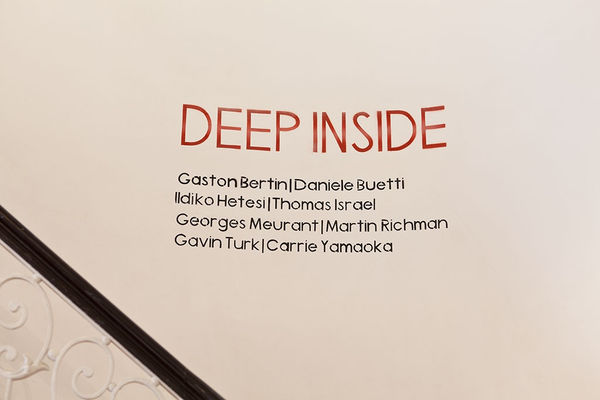 DEEP INSIDE
Gaston Bertin|Daniele Buetti
Ildiko Hetesi|Thomas Israel
Georges Meurant|Martin Richman
Gavin Turk|Carrie Yamaoka